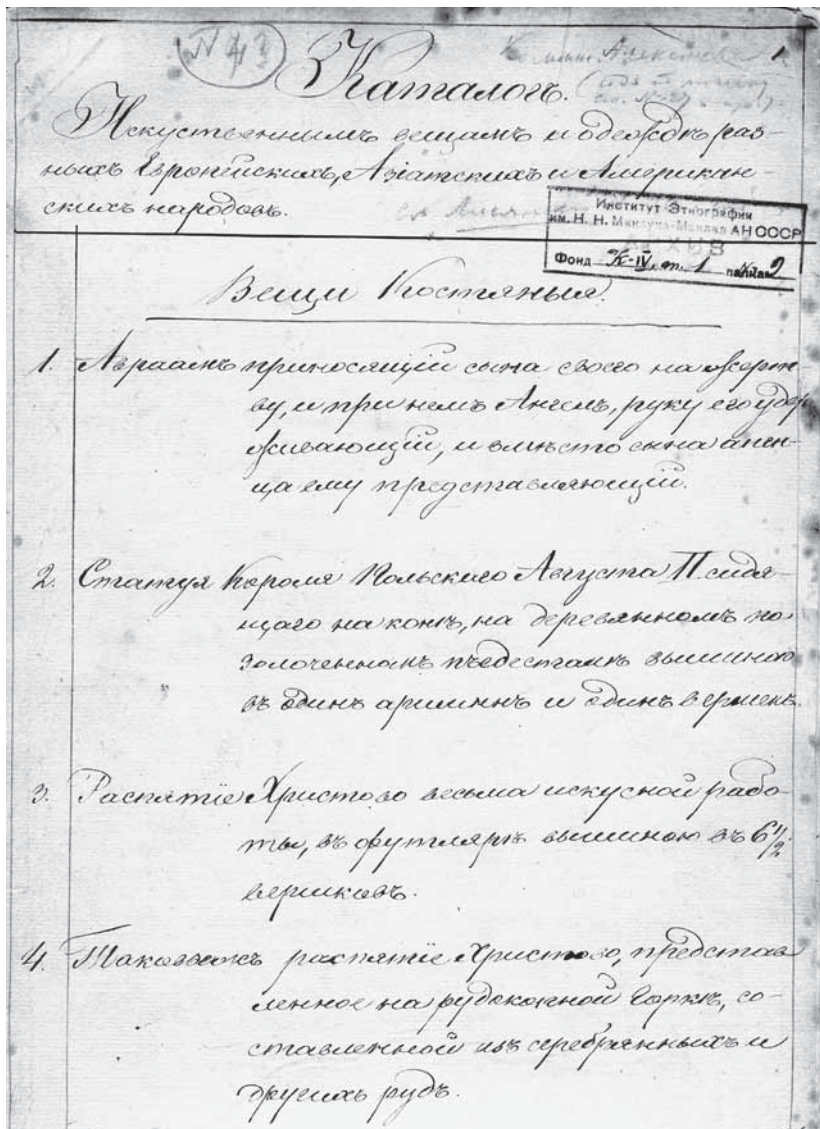 N 43
1.
Каталогъ.
Искуственнымъ вещамъ и одеждѣ раз-
ныхъ Европейскихъ, Азіатскихъ и Американ-
скихъ народовъ.
Институт Этнографии
им. Н. Н. Миклухо-Маклая АН СССР
АРХИВ
Фонд К-IV, оп. 1 папка 2
Вещи Костяныя.
1. Авраамъ приносящій сына своего на жерт-
ву, и при немъ Ангелъ, руку его удер-
живающій, и вмѣсто сына агн-
ца ему представляющій.
2. Статуя Короля Польскаго Августа II сидя-
щаго на конѣ, на деревянномъ по-
золоченномъ пьедесталѣ вышиною
въ одинъ аршинъ и одинъ вершекъ.
3. Распятіе Христово весьма искусной рабо-
ты, въ футлярѣ вышиною въ 6 1/2
вершковъ.
4. Таковоежъ распятіе Христово, представ
ленное на рудокопной горкѣ, со-
ставленной изъ серебрянныхъ и
другихъ рудъ.